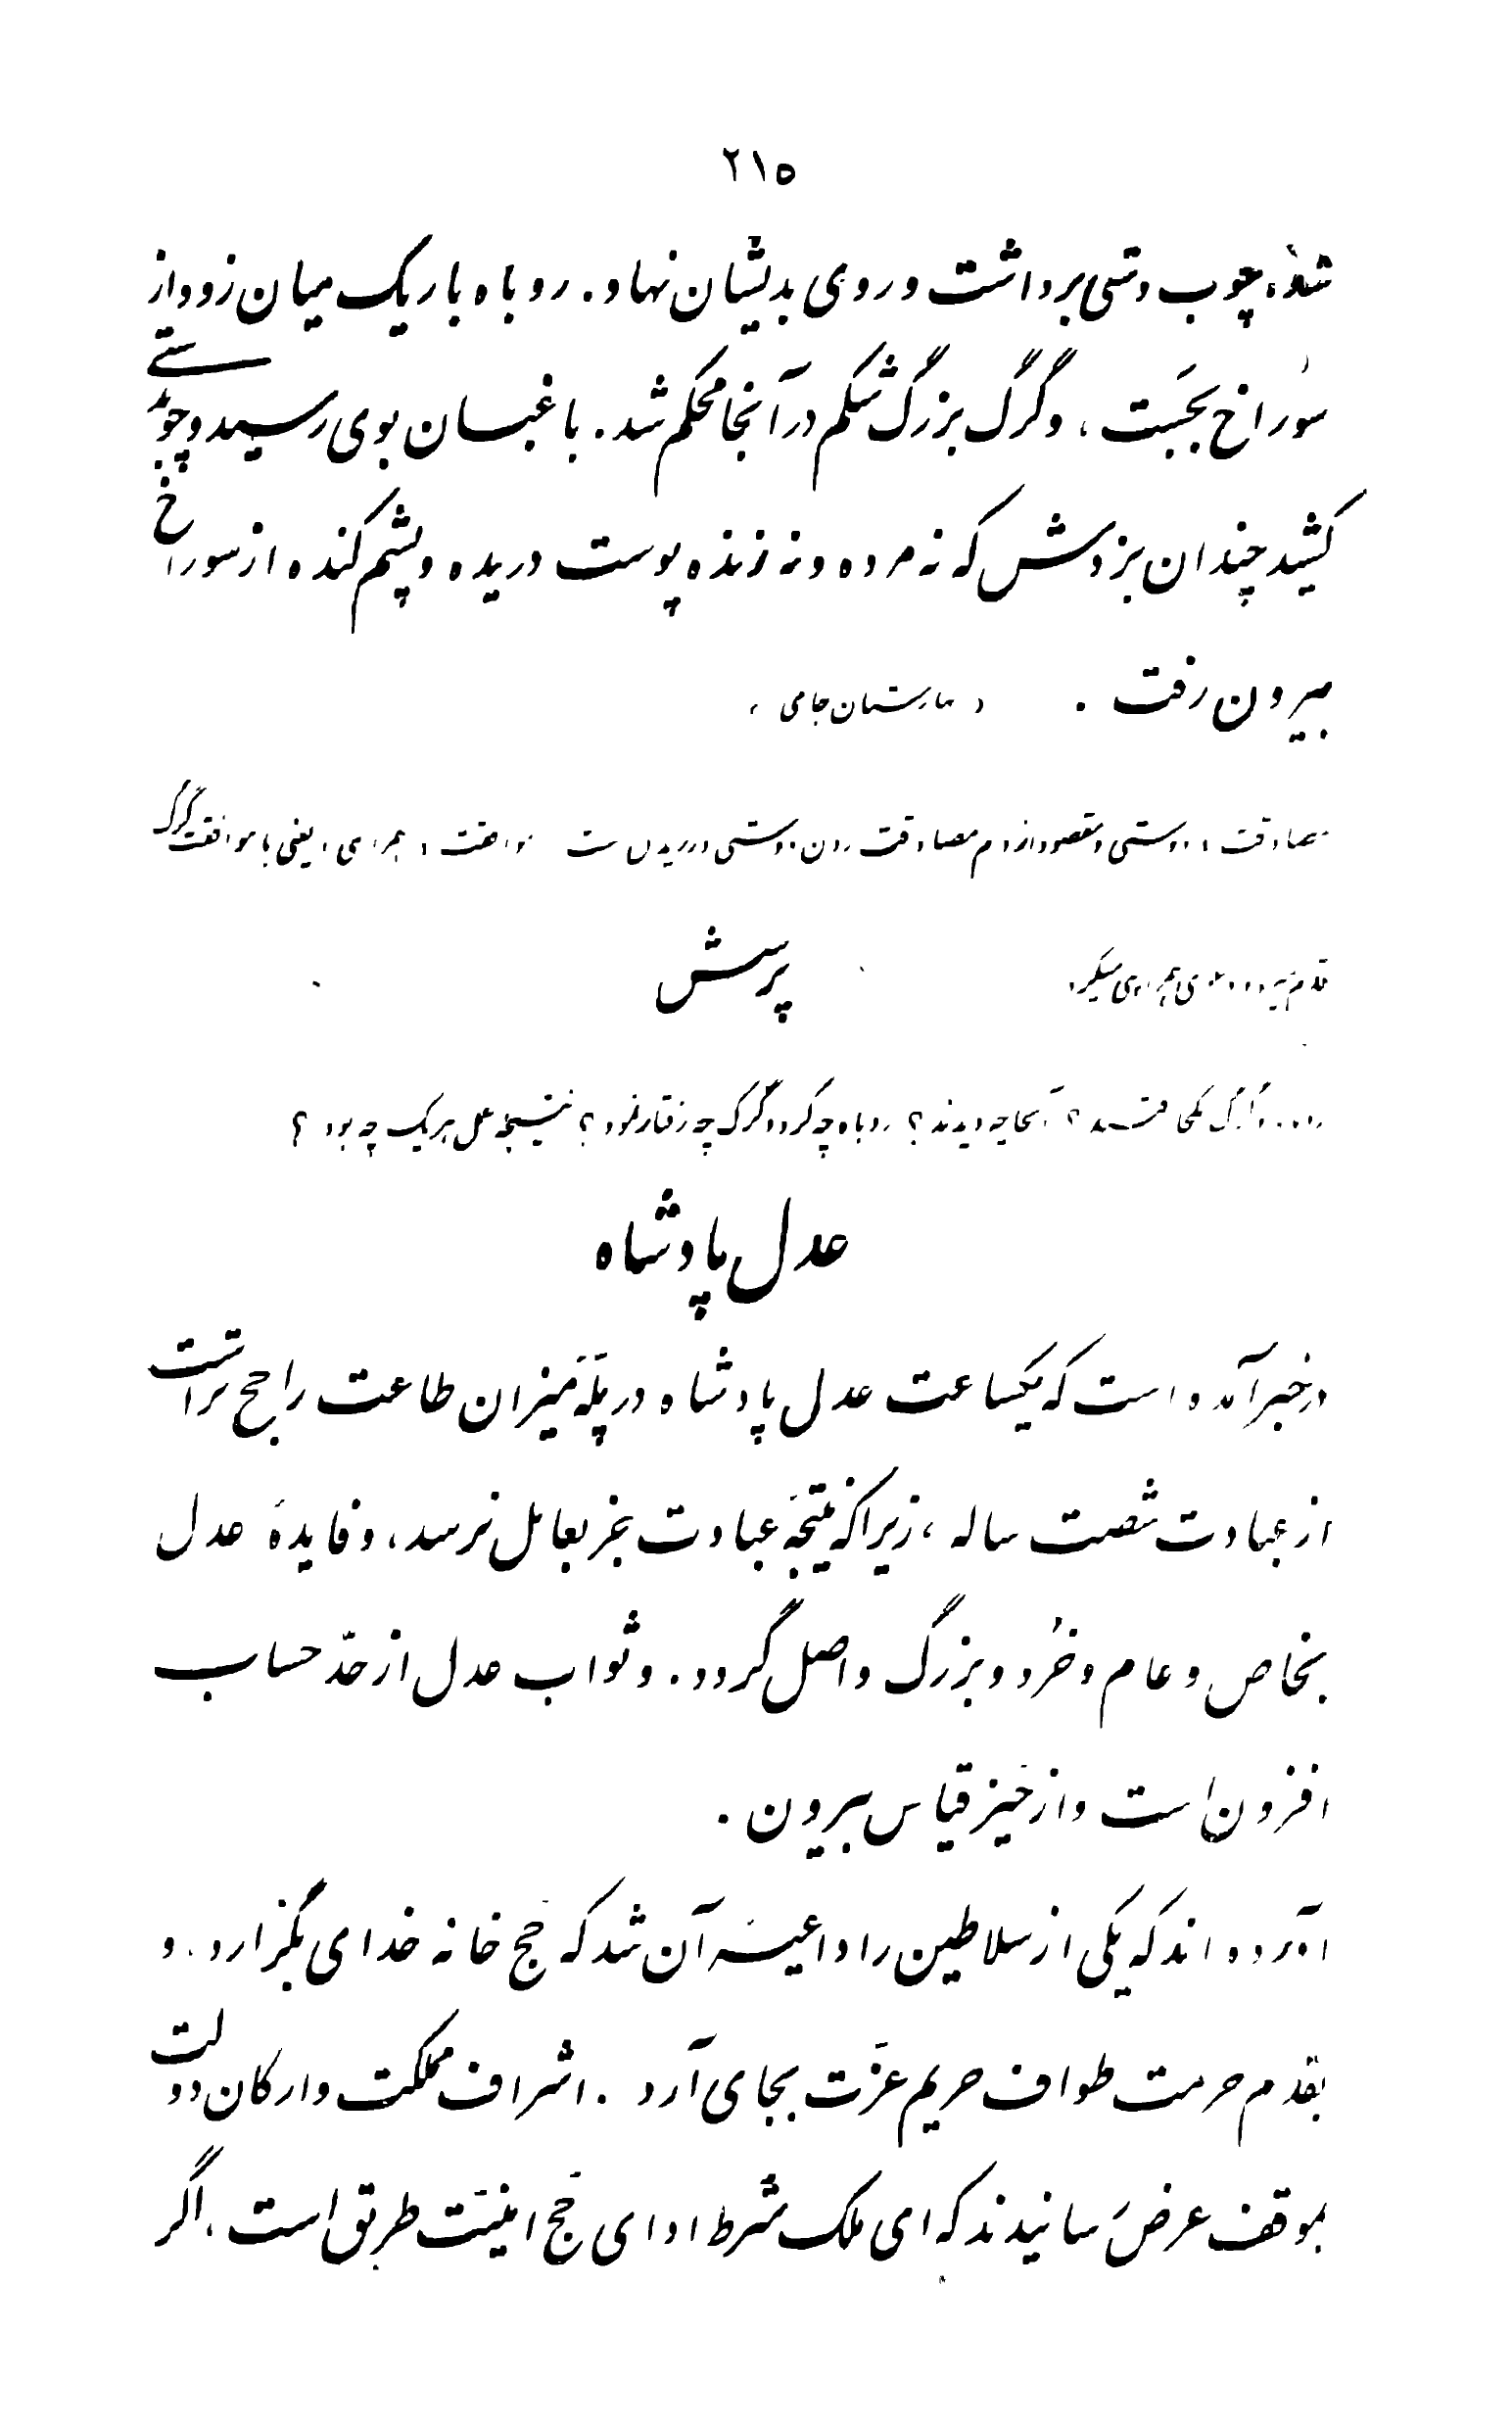 ۲۱۵
شد، چوب دستی برداشت و روی بدیشان نهاد. روباه باریک میان زود از
سوراخ بجَست، و گرگ بزرگ شکم در آنجا محکم شد. باغبان بوی رسید و چوبدستی
کشید چندان بزدش که نه مرده و نه زنده پوست دریده و پشم کنده از سوراخ
بیرون رفت. (بهارستان جامی)
مصادقت، دوستی و مقصود از دم مصادقت زدن دوستی ورزیدن است موافقت، همراهی، یعنی با موافقت گرگ
قدم میزد همراهی میکرد.
پرسش
روباه و گرگ بکجا رفتند؟ آنجا چه دیدند؟ روباه چه کرد و گرگ چه رفتار نمود؟ نتیجه عمل هر یک چه بود؟
عدل پادشاه
در خبر آمده است که یکساعت عدل پادشاه در پلّهٔ میزان طاعت راجح تر است
از عبادت شصت ساله، زیرا که نتیجهٔ عبادت بجز بعامل نرسد، و فایدهٔ عدل
بخاص و عام و خُرد و بزرگ واصل گردد. و ثواب عدل از حدّ حساب
افزون است و از حَیّز قیاس بیرون.
آورده اند که یکی از سلاطین را داعیهٔ آن شد که حَج خانه خدای بگزارد. و
بقدم حرمت طواف حریم عزّت بجای آرد. اشراف مملکت و ارکان دولت
بموقف عرض رسانیدند که ای ملک شرط ادای حَج امنیّت طریق است، اگر